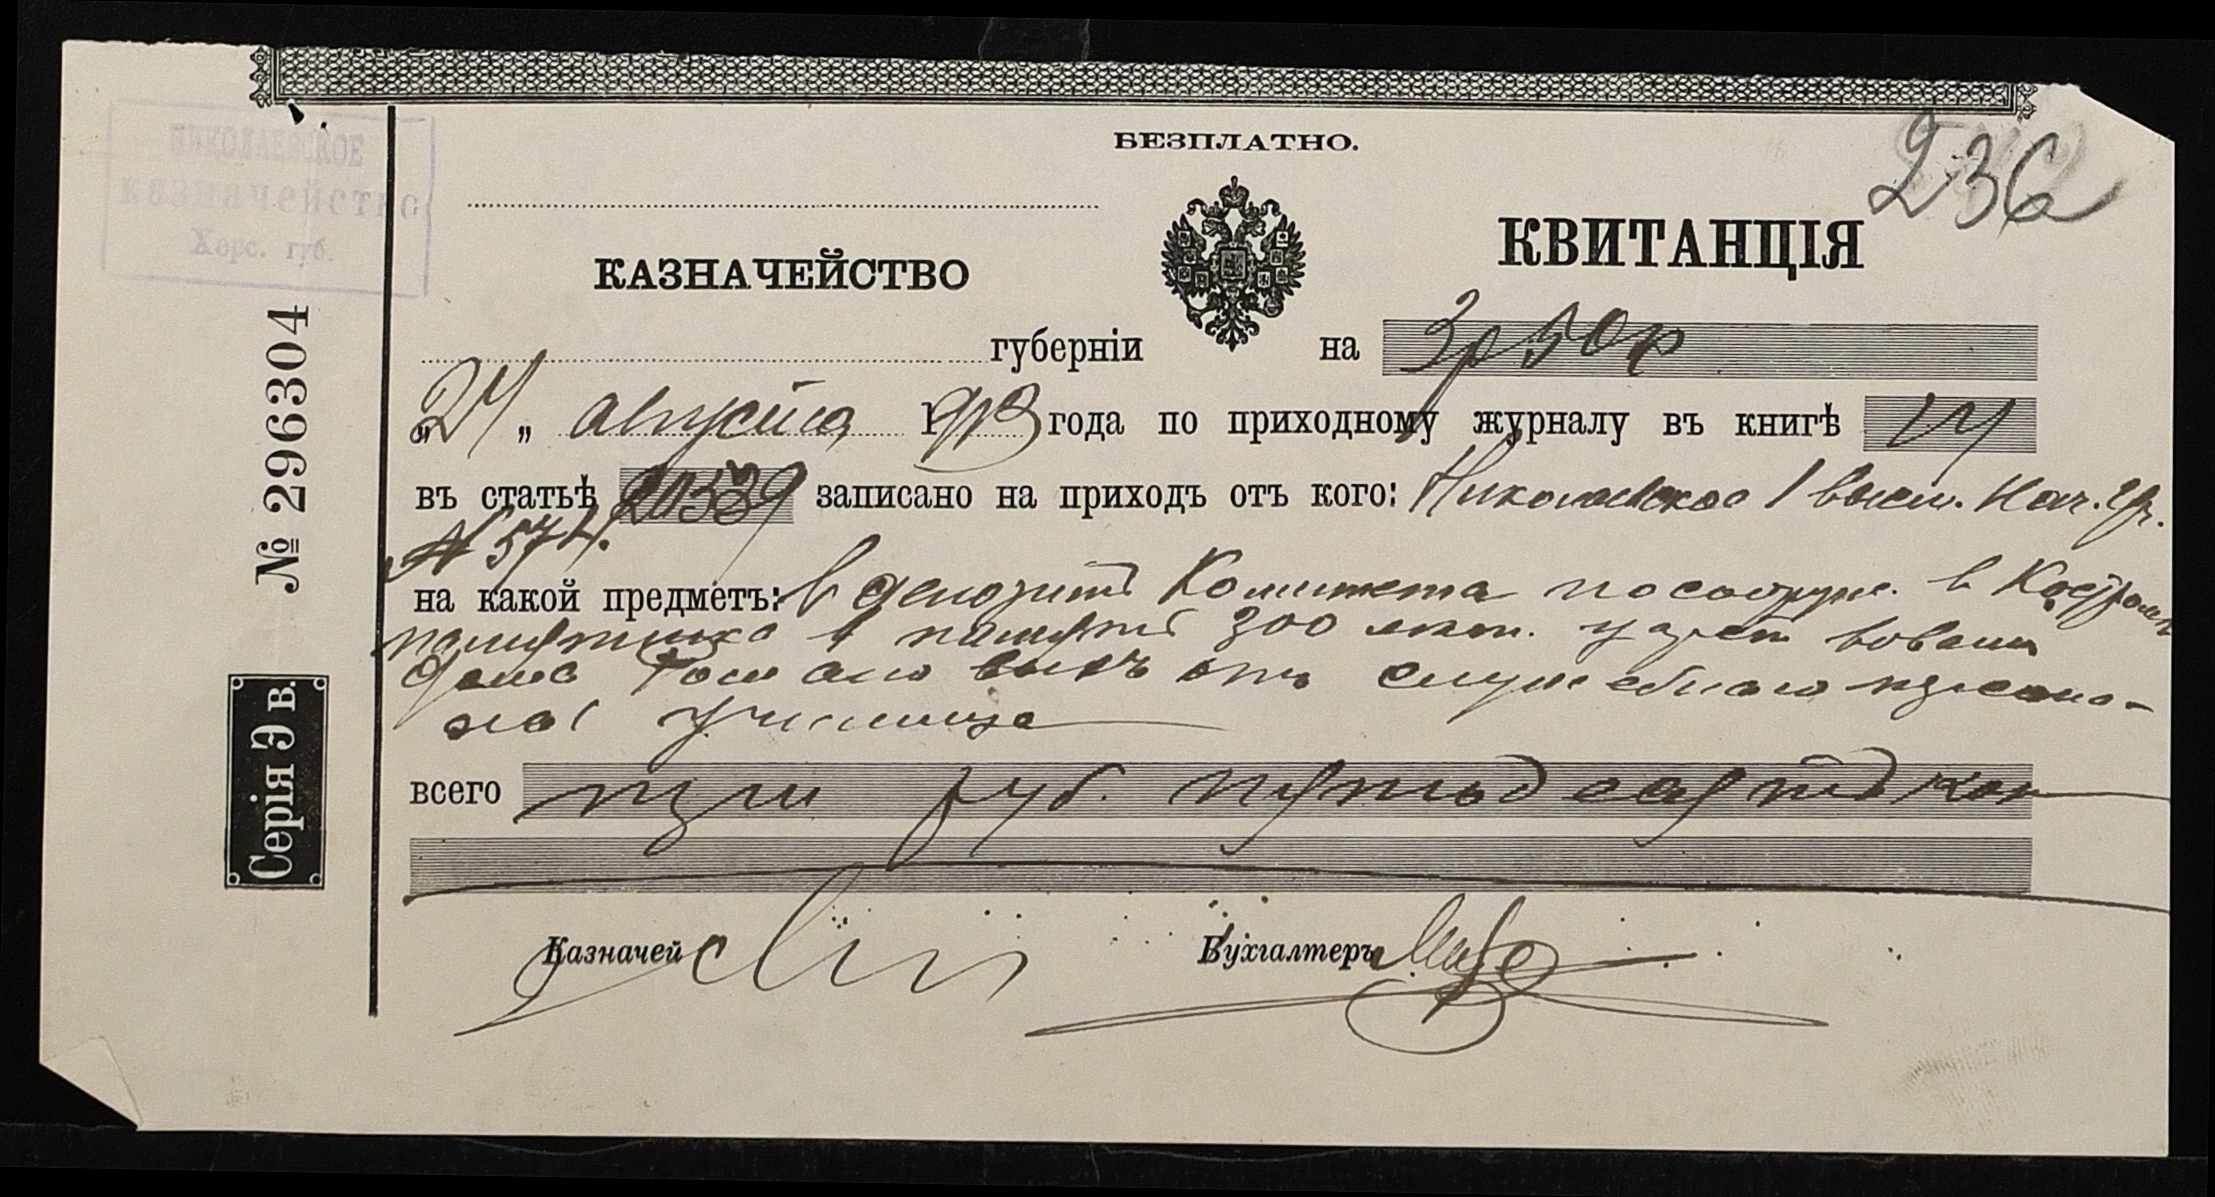 БЕЗПЛАТНО.
236
НИКОЛАЕВСКОЕ
КАЗНАЧЕЙСТВО
Херс. губ.
КАЗНАЧЕЙСТВО
КВИТАНЦІЯ
губерніи
на 3р 50к
„24„ августа 1913 года по приходному журналу въ книгѣ 14
въ статьѣ 20539 записано на приходъ отъ кого: Николаевское 1 высш. нач. уч.
№ 574.
на какой предметъ: в депозитъ Комитета по сооруж. в Костромѣ
памятника в память 300 лѣт. царствования
дома Романовыхъ отъ служебного персона-
ла училища
всего три руб. пятьдесятъ коп
Казначей
Бухгалтеръ
№ 296304
Серія Э в.